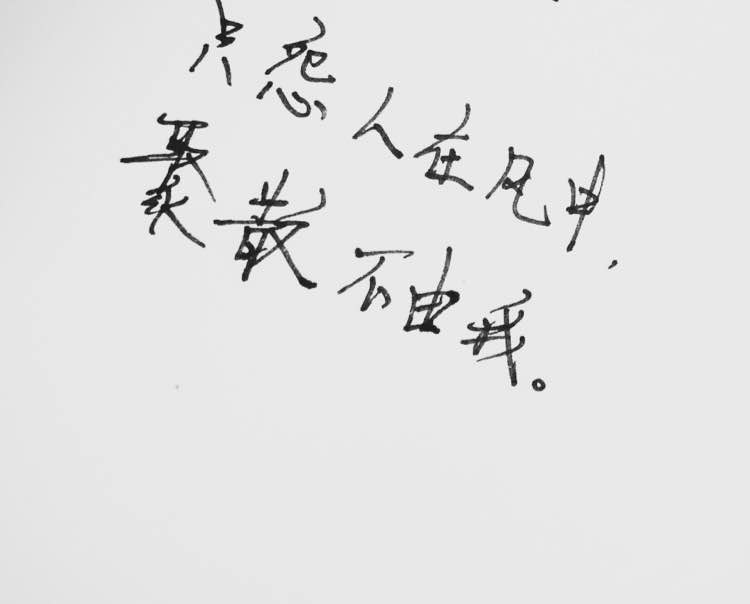 只怨人在风中,
聚散不由我。